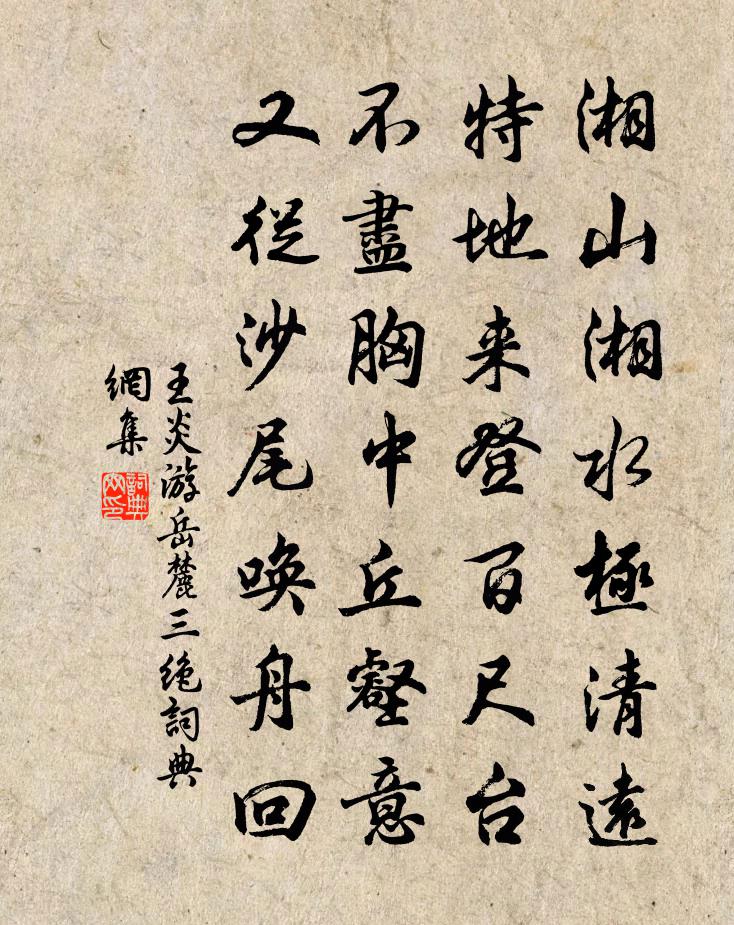 湘山湘水極清遠
特地来登百尺台
不盡胸中丘壑意
又從沙尾喚舟回
王炎游岳麓三絶詞典
網集
詞典
網印